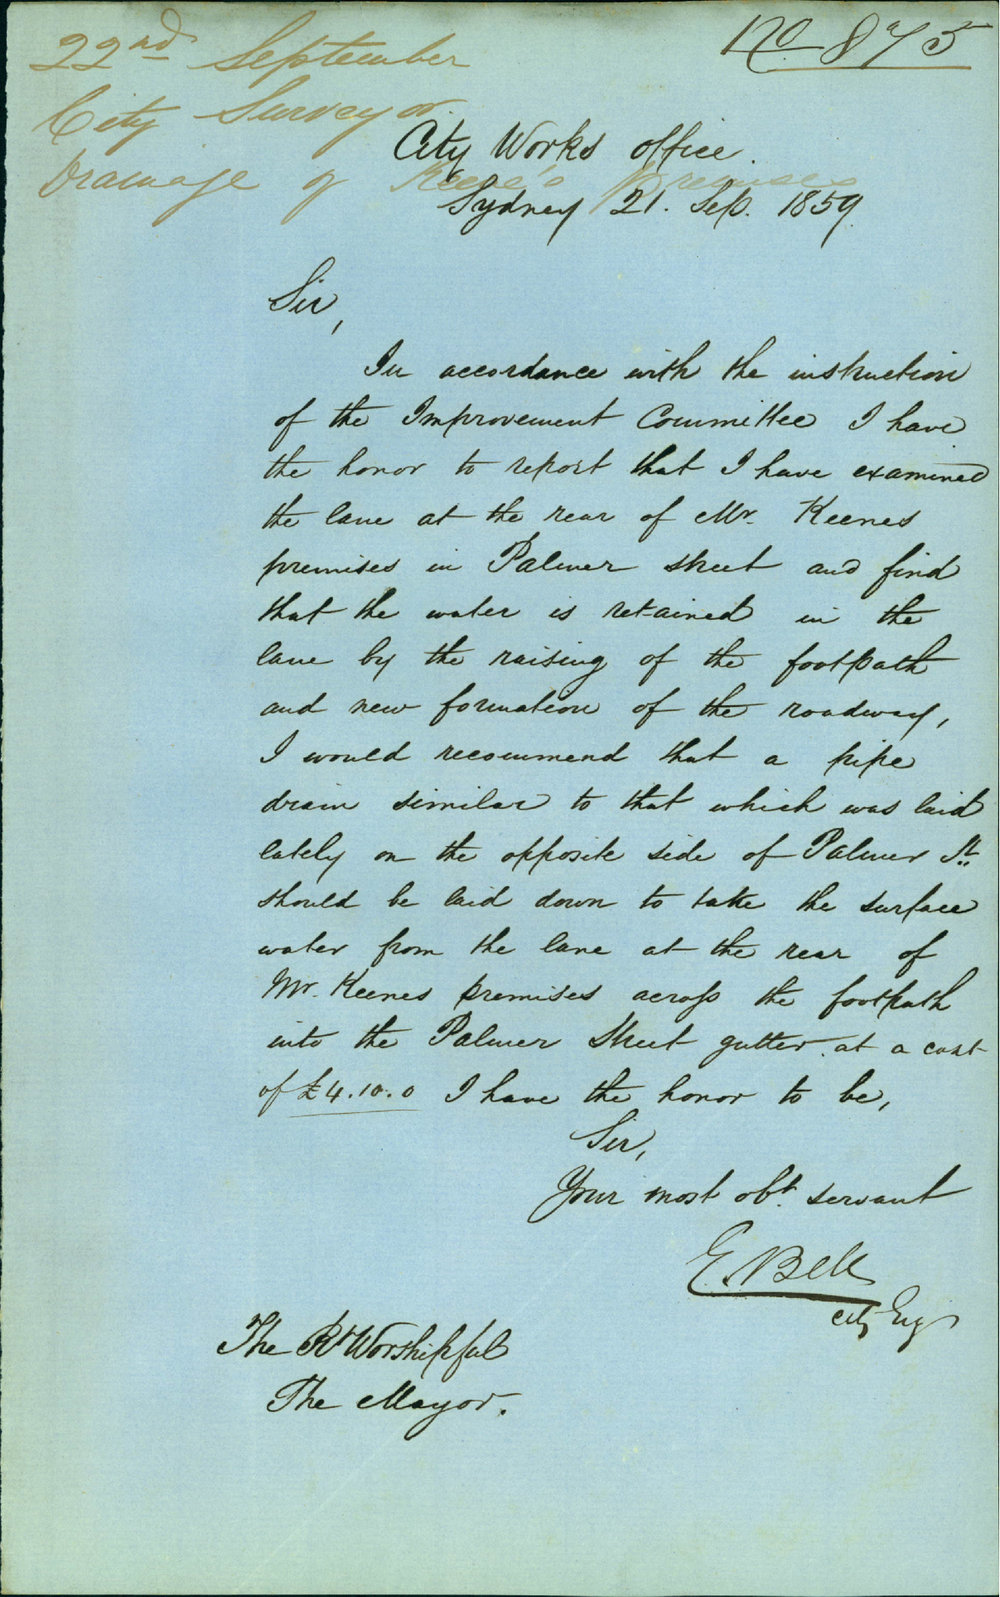 22nd September
No 875
City Surveyor
Drainage of Keene's Premises
City Works Office.
Sydney 21. Sep. 1859.
Sir,
In accordance with the instruction
of the Improvement Committee I have
the honor to report that I have examined
the lane at the rear of Mr. Keenes
premises in Palmer Street and find
that the water is retained in the
lane by the raising of the footpath
and new formation of the roadway,
I would recommend that a pipe
drain similar to that which was laid
lately on the opposite side of Palmer St.
should be laid down to take the surface
water from the lane at the rear of
Mr. Keenes premises across the footpath
into the Palmer Street gutter. at a cost
of £4.10.0 I have the honor to be,
Sir,
Your most obt. servant
E. Bell
City Eng
The Rt Worshipful
The Mayor.